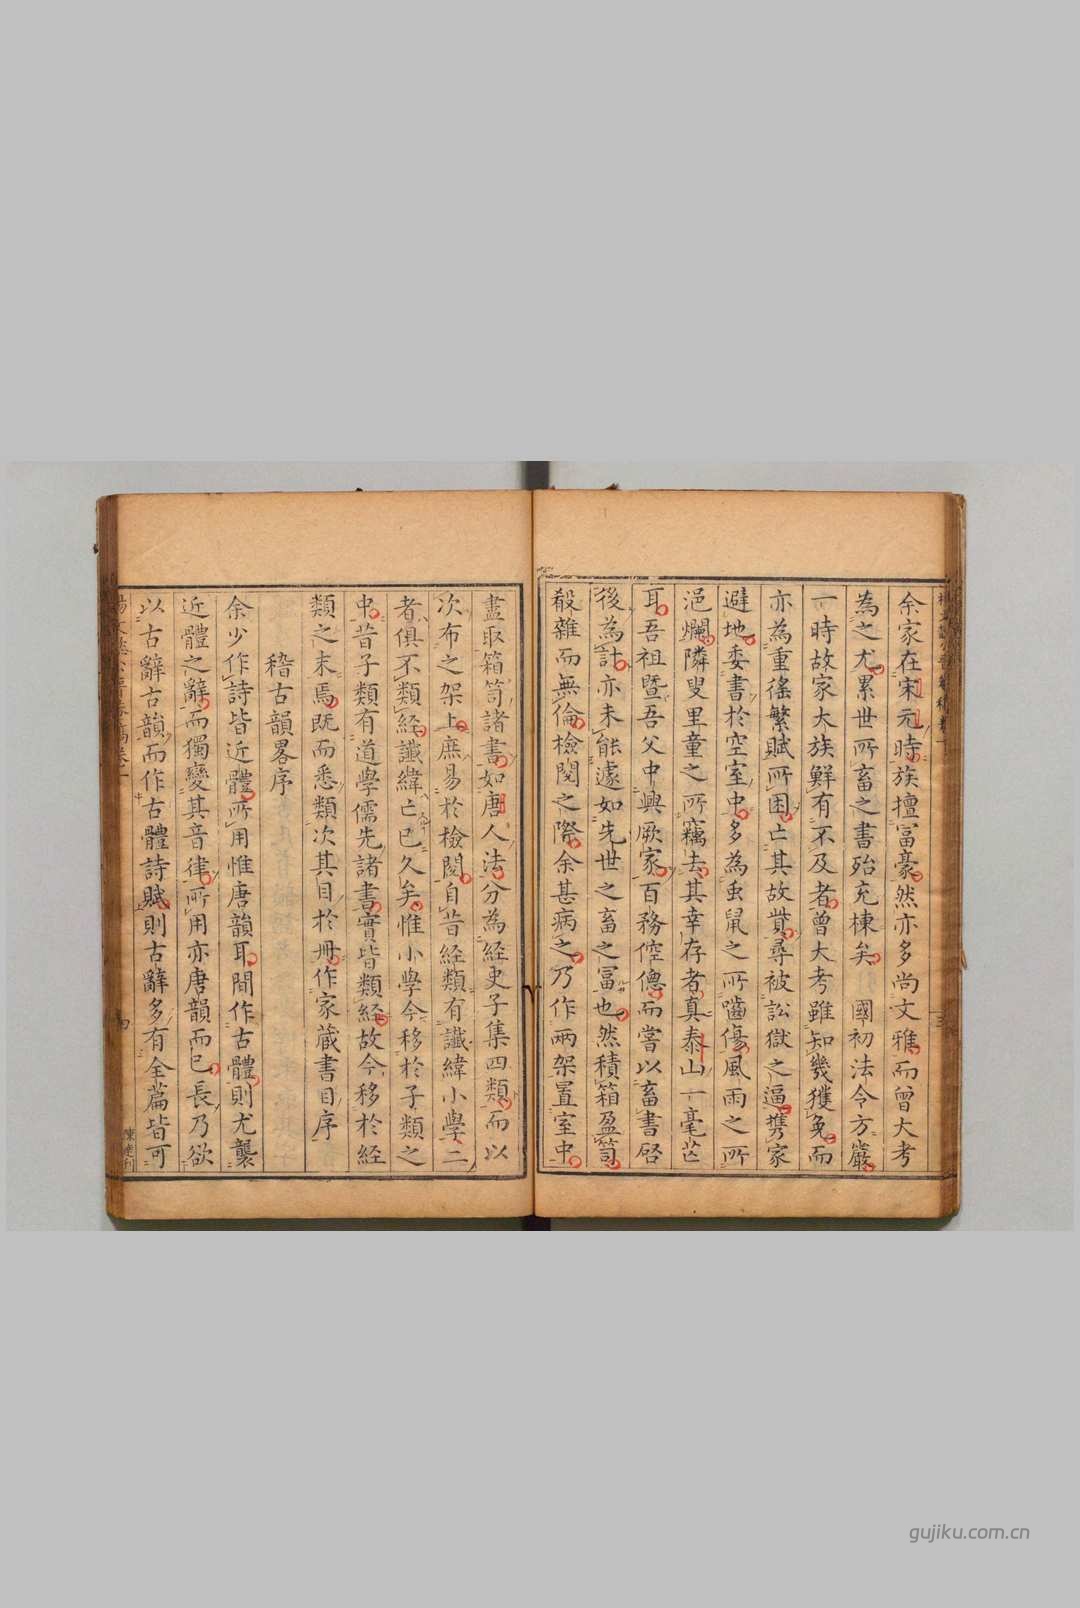 余家在宋元時族擅冨豪然亦多尚文雅而曾大考
為之尤累世所畜之書殆充棟矣國初法令方嚴
一時故家大族鮮有不及者曾大考雖知幾獲免而
亦為重徭繁賦所困亡其故貲尋被訟獄之逼携家
避地委書於空室中多為虫鼠之所嚙傷風雨之所
浥爛隣叟里童之所竊去其幸存者真泰山一毫芒
耳吾祖暨吾父中興厥家百務倥傯而嘗以畜書啓
後為計亦未能遽如先世之畜之冨也然積箱盈笥
殽雜而無倫檢閱之際余甚病之乃作兩架置室中
盡取箱笥諸書如唐人法分為經史子集四類而以
次布之架上庶易於檢閱自昔經類有讖緯小學二
者俱不類經讖緯亡已久矣惟小學今移於子類之
中昔子類有道學儒先諸書實皆類經故今移於經
類之末焉既而悉類次其目於冊作家蔵書目序
稽古韻畧序
余少作詩皆近體所用惟唐韻耳間作古體則尤襲
近體之辭而獨變其音律所用亦唐韻而已長乃欲
以古辭古韻而作古體詩賦則古辭多有全篇皆可
楊文懿公晉菴稿卷一
四
陳達刋
三
gujiku.com.cn